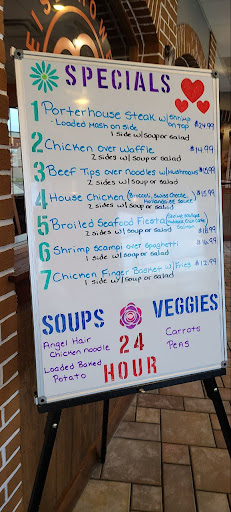 SPECIALS
1 Porterhouse Steak w/ shrimp on top $24.99
- Loaded Mash on side
1 side w/ soup or salad
2 Chicken over Waffle $14.99
2 sides w/ soup or salad
3 Beef Tips over Noodles w/ Mushrooms $15.99
2 sides w/ soup or salad
4 House Chicken (Broccoli, Swiss Cheese, Hollandaise Sauce) $15.99
2 sides w/ soup or salad
5 Broiled Seafood Fiesta $18.99
2 sides w/ soup or salad
6 Shrimp Scampi over Spaghetti $16.99
1 side w/ soup or salad
7 Chicken Finger Basket w/ Fries $12.99
1 side w/ soup or salad
SOUPS
Angel Hair
Chicken noodle
Loaded Baked
Potato
24
HOUR
VEGGIES
Carrots
Peas